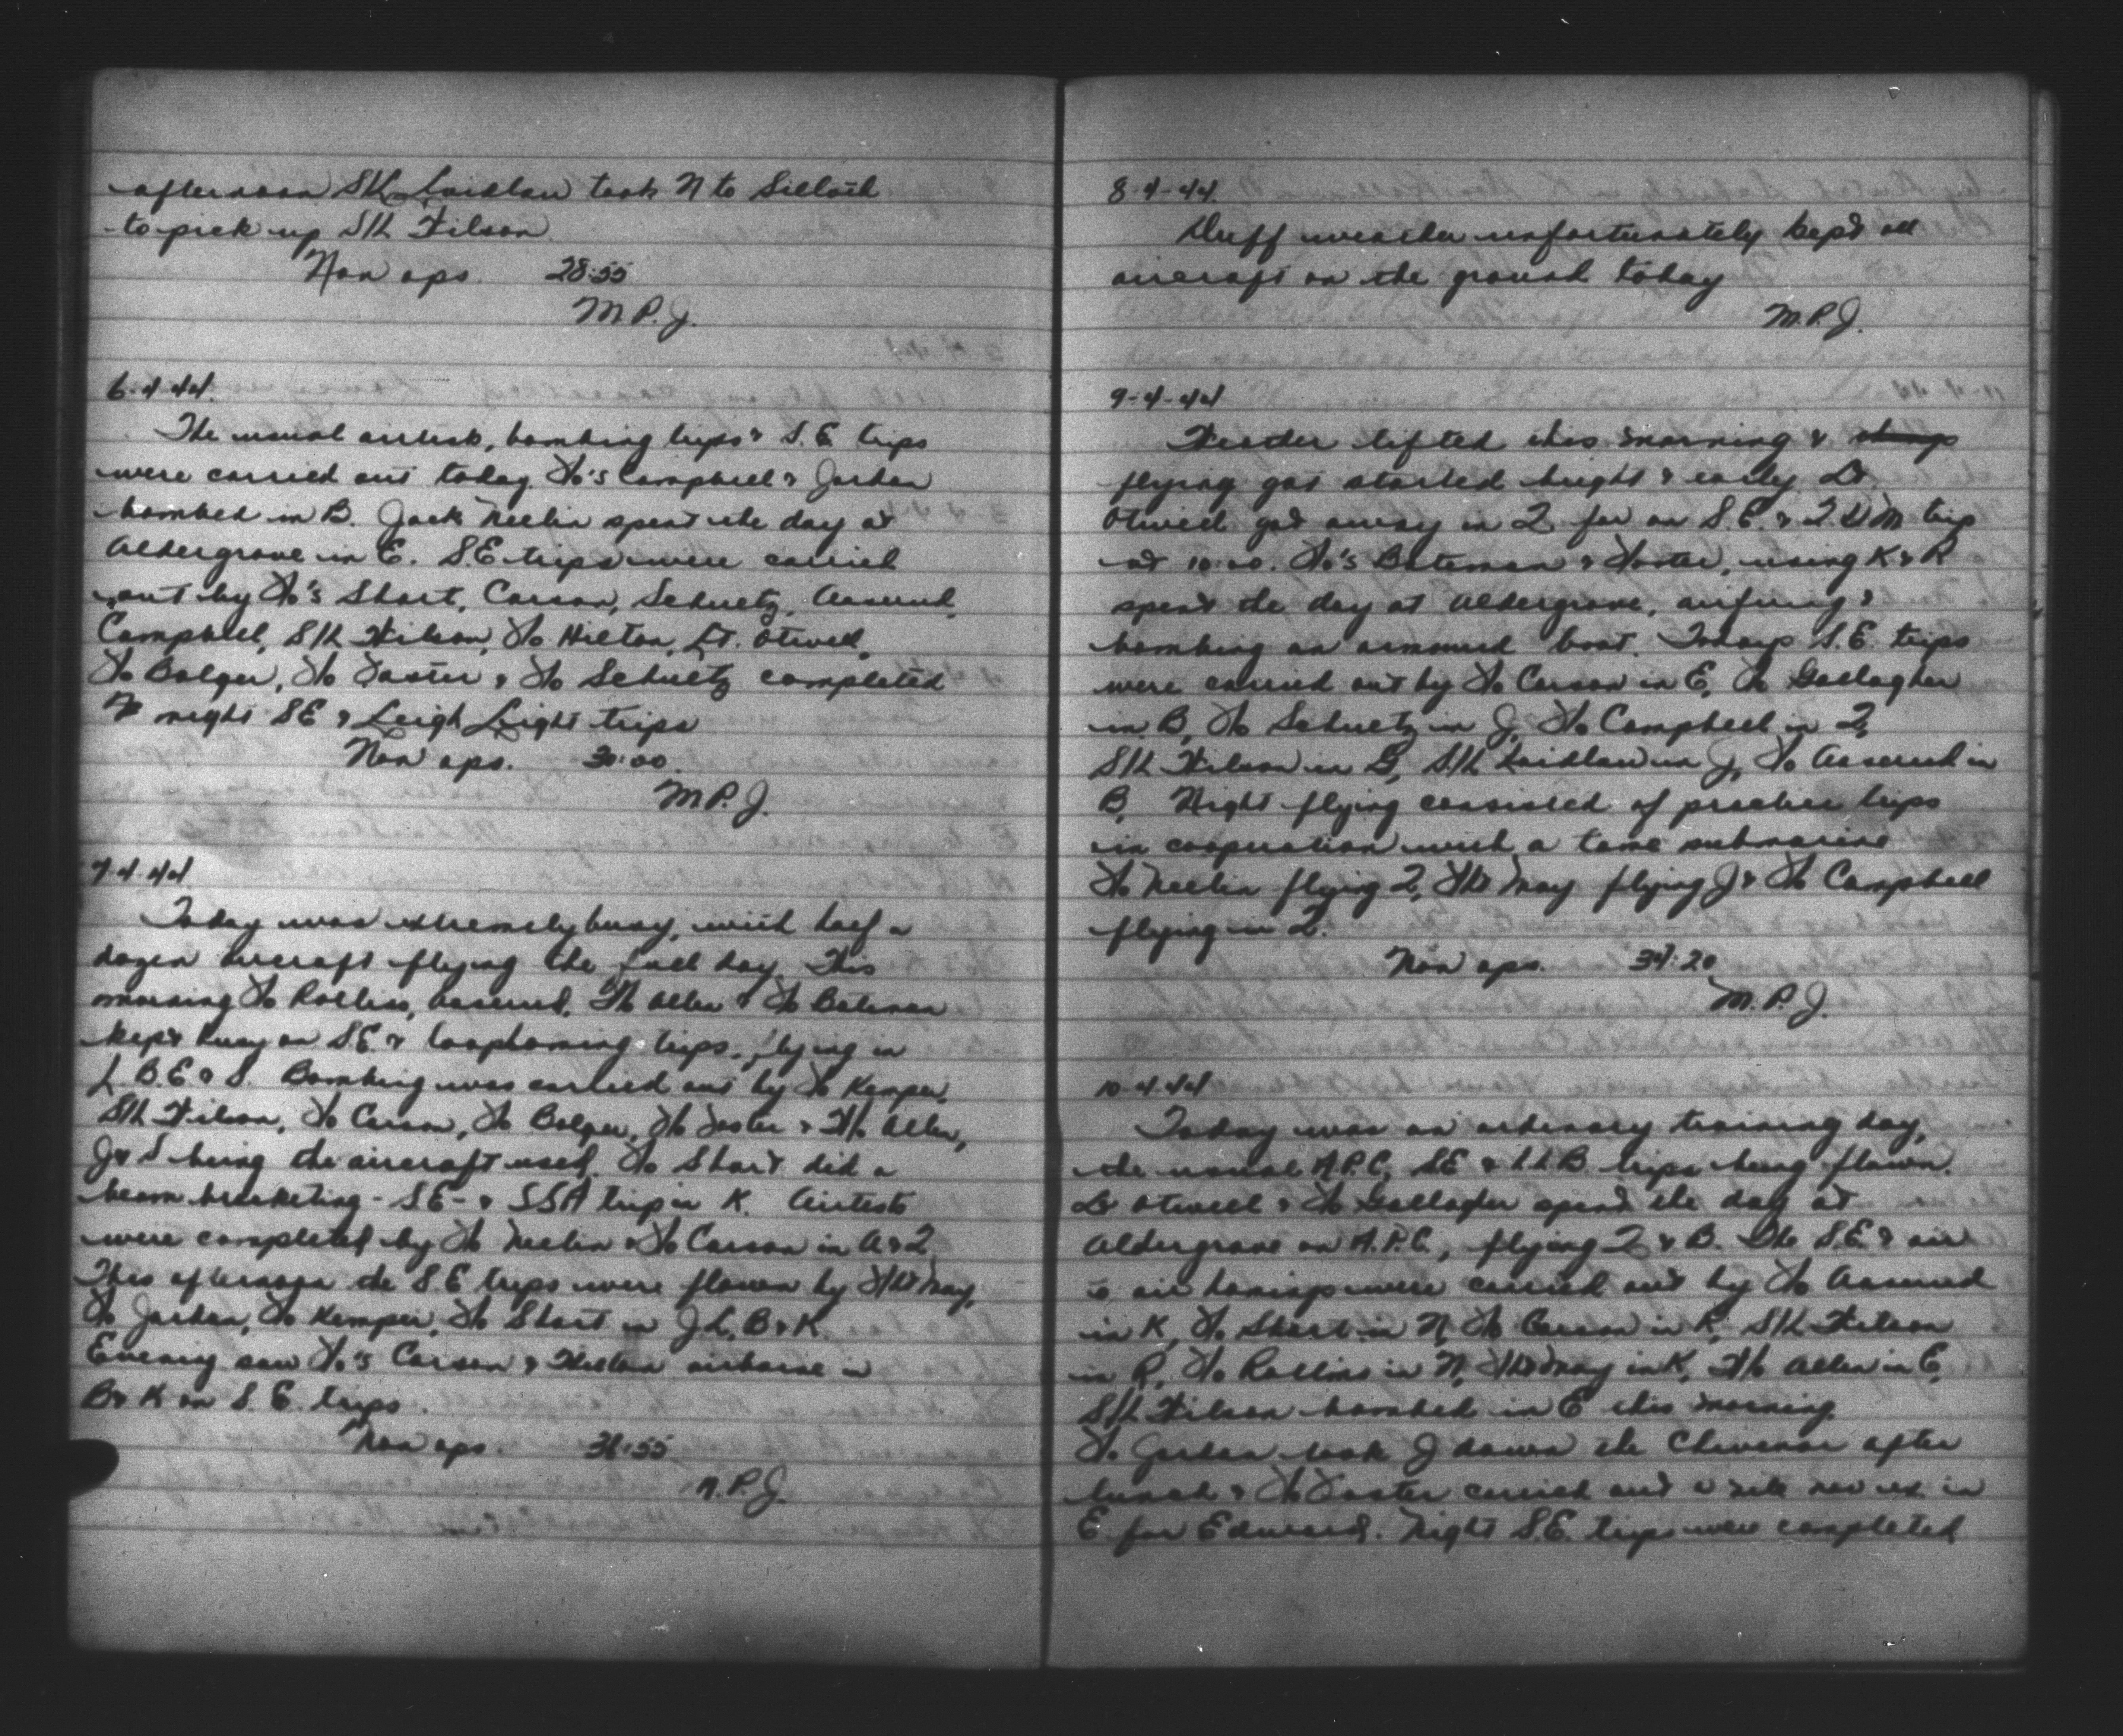 afternoon S/L Laidlaw took N to Silloth
to pick up S/L Wilson.
Non ops. 28:55
M.P.J.
6-4-44.
The usual airtests, bombing trips & S.E. trips
were carried out today. F/o's Campbell & Jordan
bombed in B. Jack Neelin spent the day at
Aldergrove in E. S.E trips were carried
out by F/o's Short, Carson, Schultz, Aaserud,
Campbell, S/L Wilson, F/o Hilton, Lt. Otwell,
F/o Bolger, F/o Foster & F/o Schultz completed
night SE & Leigh Light trips
Non ops. 30:00.
M.P.J.
7-4-44
Today was extremely busy, with half a
dozen aircraft flying the full day. This
morning F/o Rollins, Aaserud, Allen & F/o Bateman
kept busy on S.E. & loop homing trips, flying in
L. B. E & S. Bombing was carried out by F/o Kemper,
S/L Wilson, F/o Carson, F/o Bolger, F/o Foster & Allen,
J & S being the aircraft used. F/o Short did a
beam bracketing - S.E - & SSA trip in K. Airtests
were completed by F/o Neelin & F/o Carson in A & 2
This afternoon the S.E trips were flown by May,
F/o Jordan, F/o Kemper, F/o Short in J L, B & K.
Evening saw F/o's Carson & airborne in
B & K on S. E. trips.
Non ops. :55
M.P.J.
8-4-44.
Duff weather unfortunately kept all
aircraft on the ground today
M.P.J.
9-4-44
Weather lifted this morning &
flying got started bright & early. Lt
Otwell got away in 2 for an S.E. & trip
at 10:00. F/o's Bateman & Foster, using K & R
spent the day at Aldergrove, airfiring &
bombing an armoured boat. S.E. trips
were carried out by F/o Carson in E, F/o Gallagher
in B, F/o Schultz in J, F/o Campbell in 2,
S/L Wilson in B, S/L Laidlaw in J, F/o Aaserud in
B. Night flying consisted of practice trips
in cooperation with a tame submarine
F/o Neelin flying 2, May flying J & F/o Campbell
flying in 2.
Non ops. 34:20
M.P.J.
10-4-44
Today was an ordinary training day,
the usual A.P.C, SE & LLB trips being flown.
Lt Otwell & F/o Gallagher spent the day at
Aldergrove on A.P.C., flying 2 & B. The S.E. & air
to air homings were carried out by F/o Aaserud
in K, F/o Short in N, F/o Carson in R, S/L Wilson
in R, F/o Rollins in N, May in K, Allen in E,
S/L Wilson bombed in E this morning.
F/o Jordan took J down the Chivenor after
lunch & F/o Foster carried out a in
E for Edward. Night S.E. trips were completed